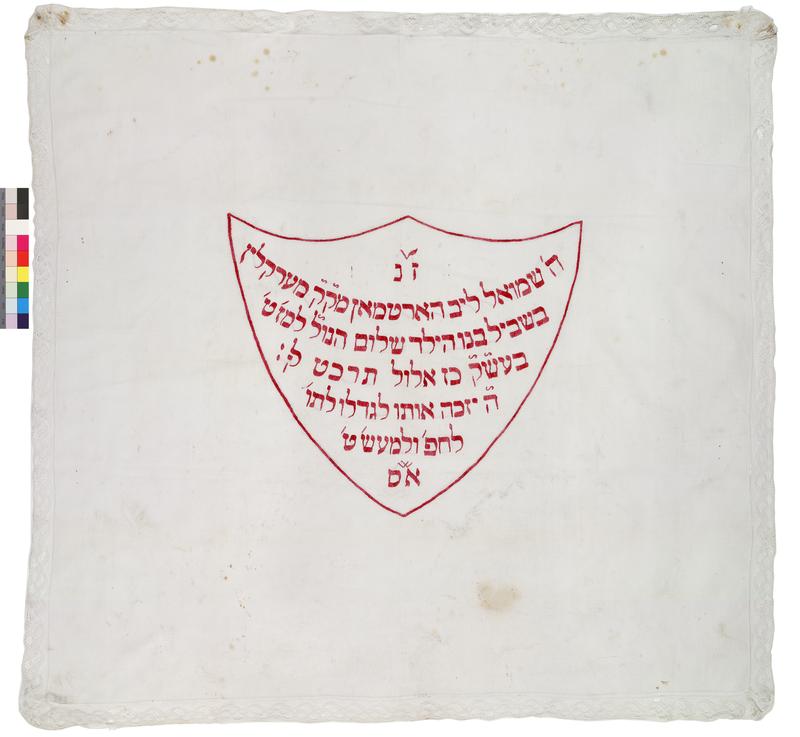 ז״נ
ה' שמואל ליב הארטמאן מק״ק מערקלין
בשביל בנו הילד שלום הנו״ל למז״ט
בעש״ק כז אלול תרכט ל״פ:
ה״ יזכה אותו לגדלו לתו'
לחפ' ולמעש״ט
א״ס